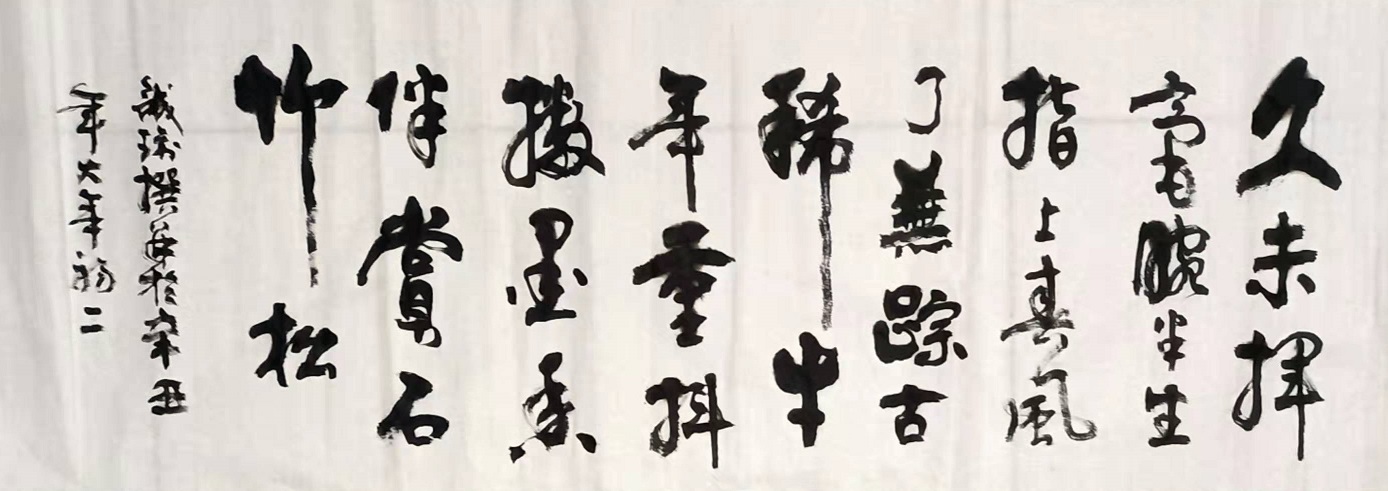 久未揮
毫腕半生
指上春風
了無踪古
稀牛
年重抖
擻墨香
伴賞石
竹松
誠撰并於辛丑
年大年初二